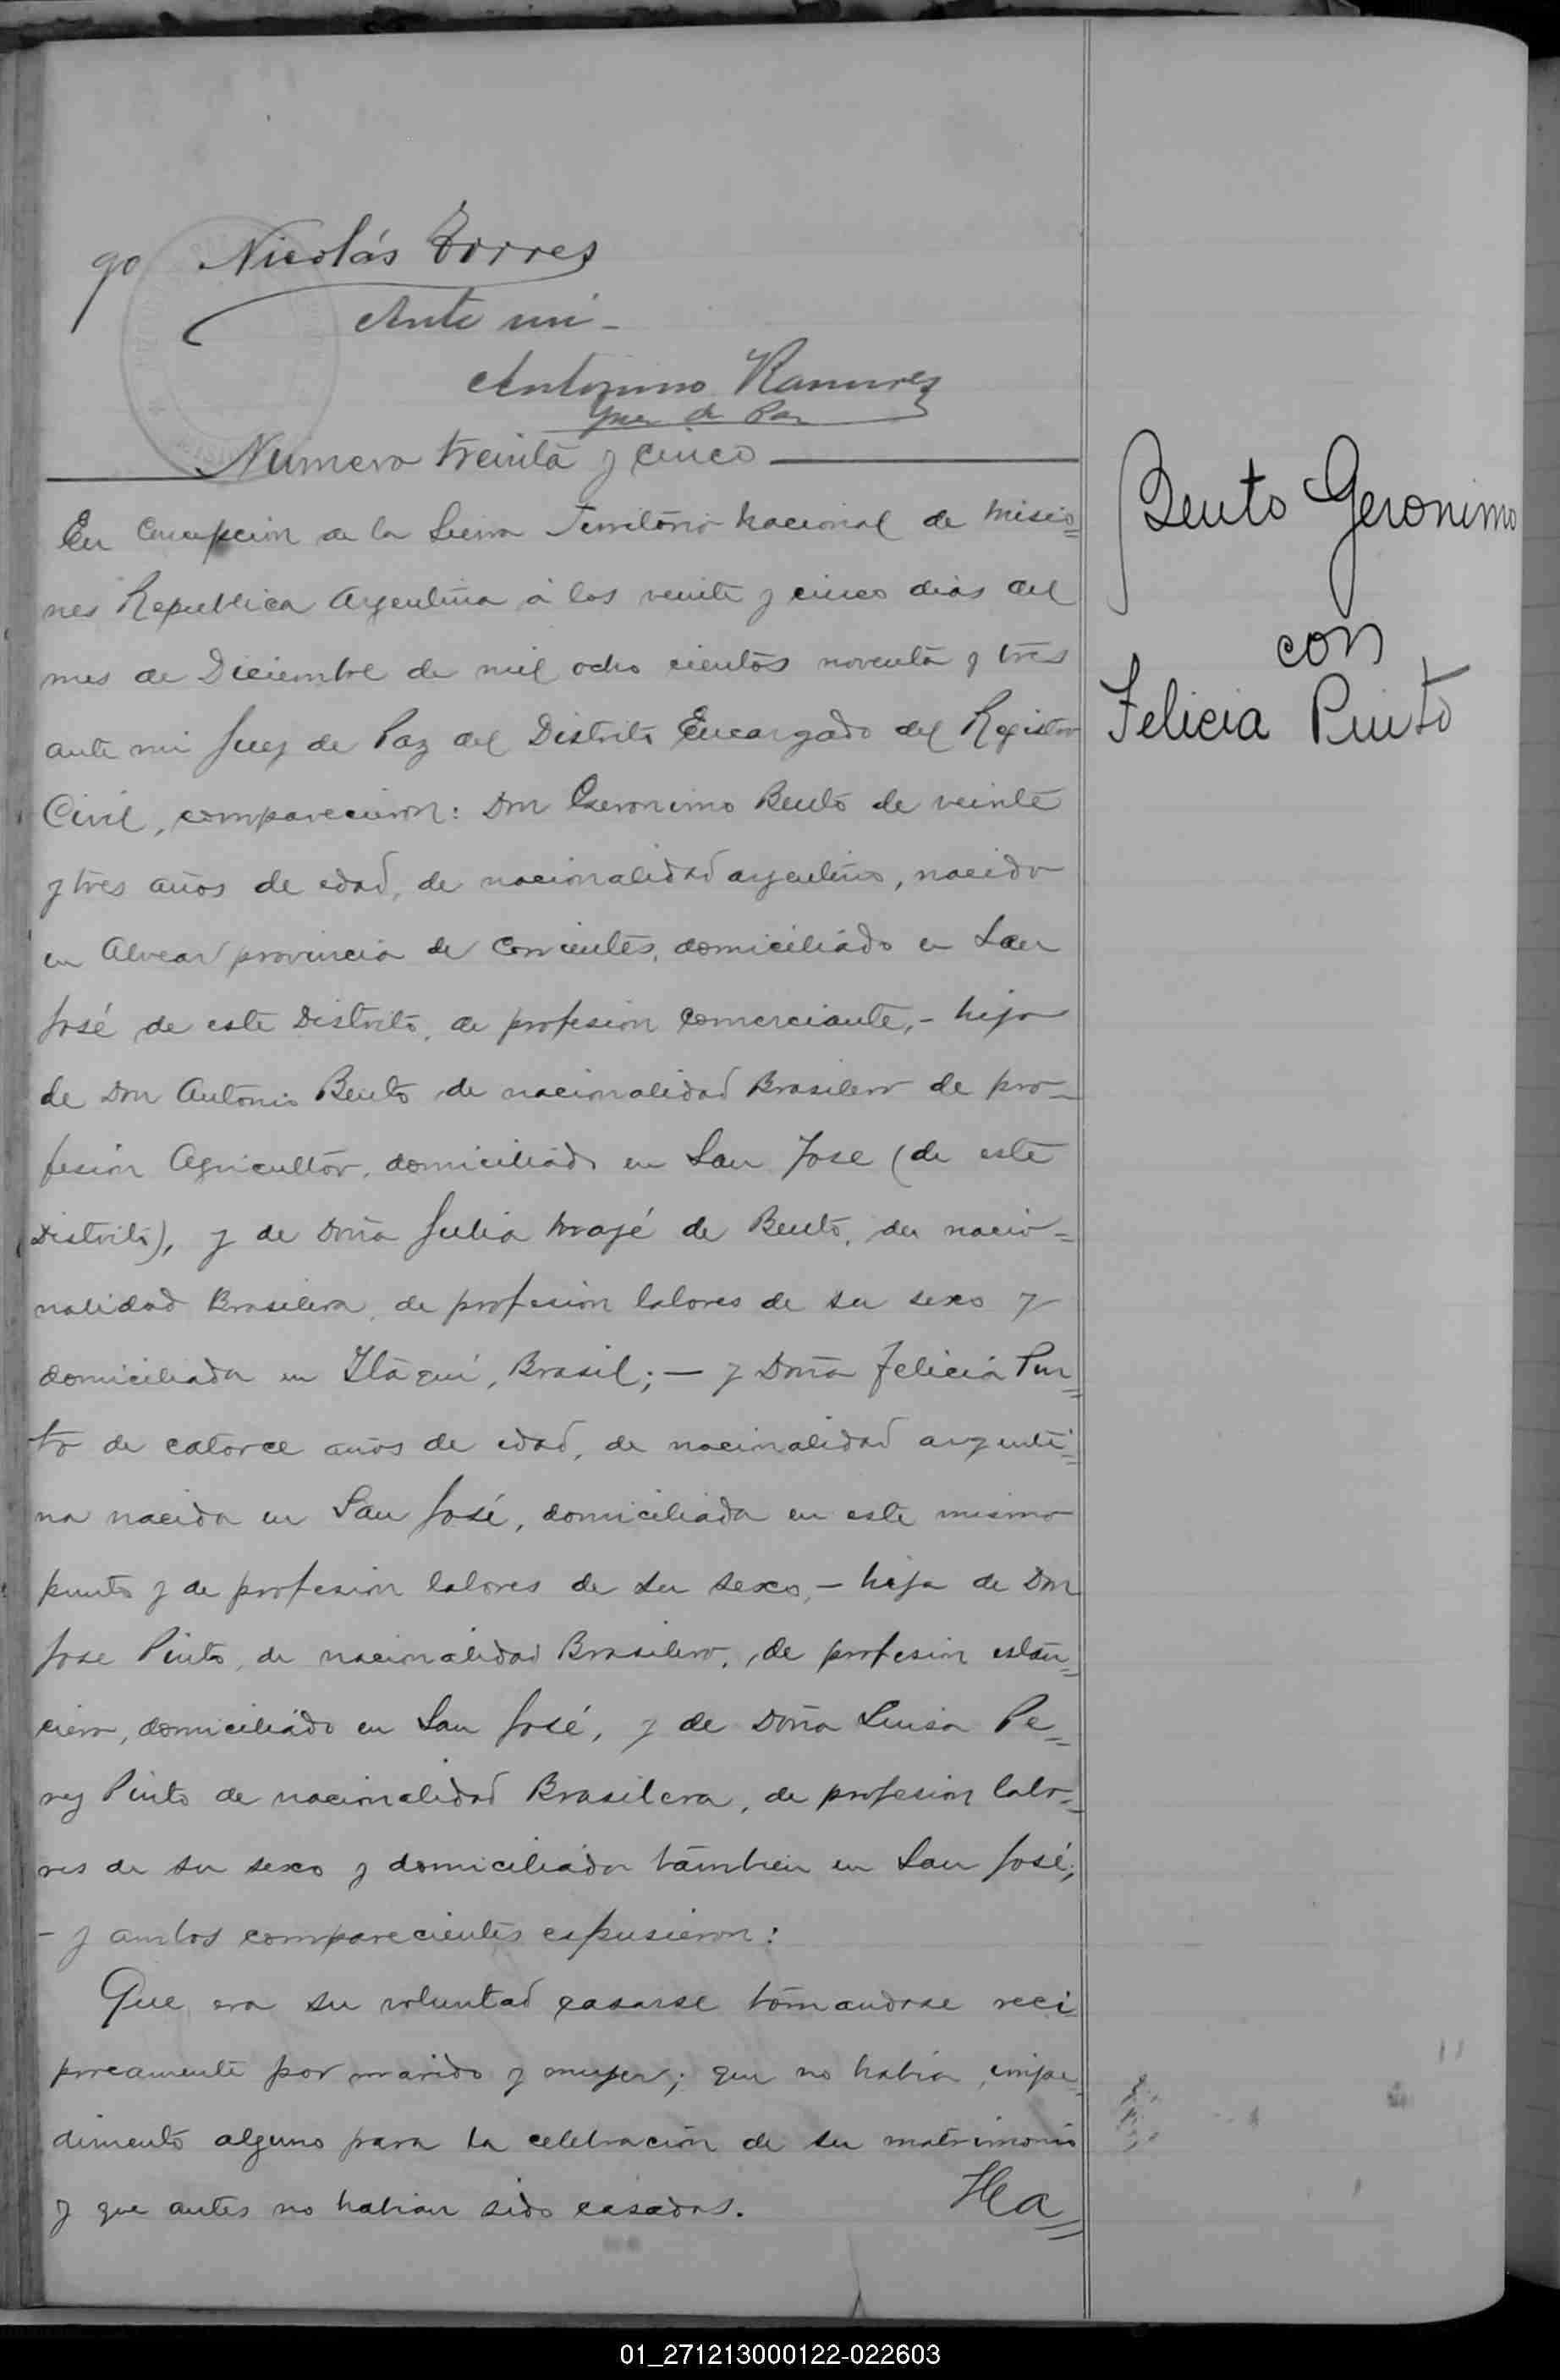 go Nicolás Torres
Ante mi-
Antonino Ramires
Juez de Paz
Numero treinta y cinco
En Concepcion de la Sierra Territorio Nacional de Misio=
nes Republica Argentina á los veinte y cinco dias del
mes de Diciembre de mil ocho cientos noventa y tres
ante mi Juez de Paz del Distrito Encargado del Registro
Civil, comparecieron: Don Geronimo Bento de veinte
y tres años de edad, de nacionalidad argentino, nacido
en Alvear provincia de Corrientes, domiciliado en San
José de este Distrito, de profesion comerciante,- hijo
de Don Antonio Bento de nacionalidad Brasilero de pro-
fesion Agricultor, domiciliado en San Jose (de este
Distrito), y de Doña Julia de Bento, de nacio=
nalidad Brasilera, de profesion labores de su sexo y
domiciliada en Itaqui, Brasil;- y Doña Felicia Pin=
to de catorce años de edad, de nacionalidad argenti=
na nacida en San José, domiciliada en este mismo
punto y de profesion labores de su sexo,- hija de Don
Jose Pinto, de nacionalidad Brasilero, de profesion estan=
ciero, domiciliado en San José, y de Doña Luisa Pe=
rez Pinto de nacionalidad Brasilera, de profesion labo=
res de su sexo y domiciliada tambien en San José;
- y ambos comparecientes espusieron:
Que era su voluntad casarse tomandose reci
procamente por marido y mujer; que no habia impe=
dimento alguno para la celebracion de su matrimonio
y que antes no habian sido casados. Ha=
Bento Geronimo
con
Felicia Pinto
01_271213000122-022603